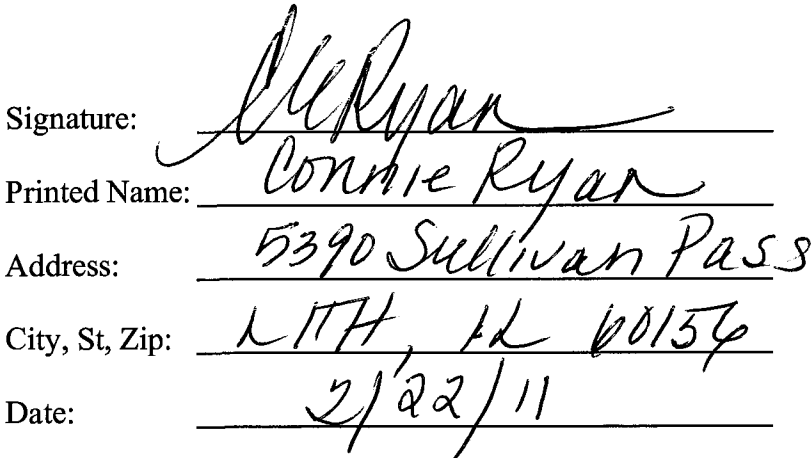 Signature: CCRyan
Printed Name: Connie Ryan
Address: 5390 Sullivan Pass
City, St, Zip: LITH, IL 60156
Date: 2/22/11